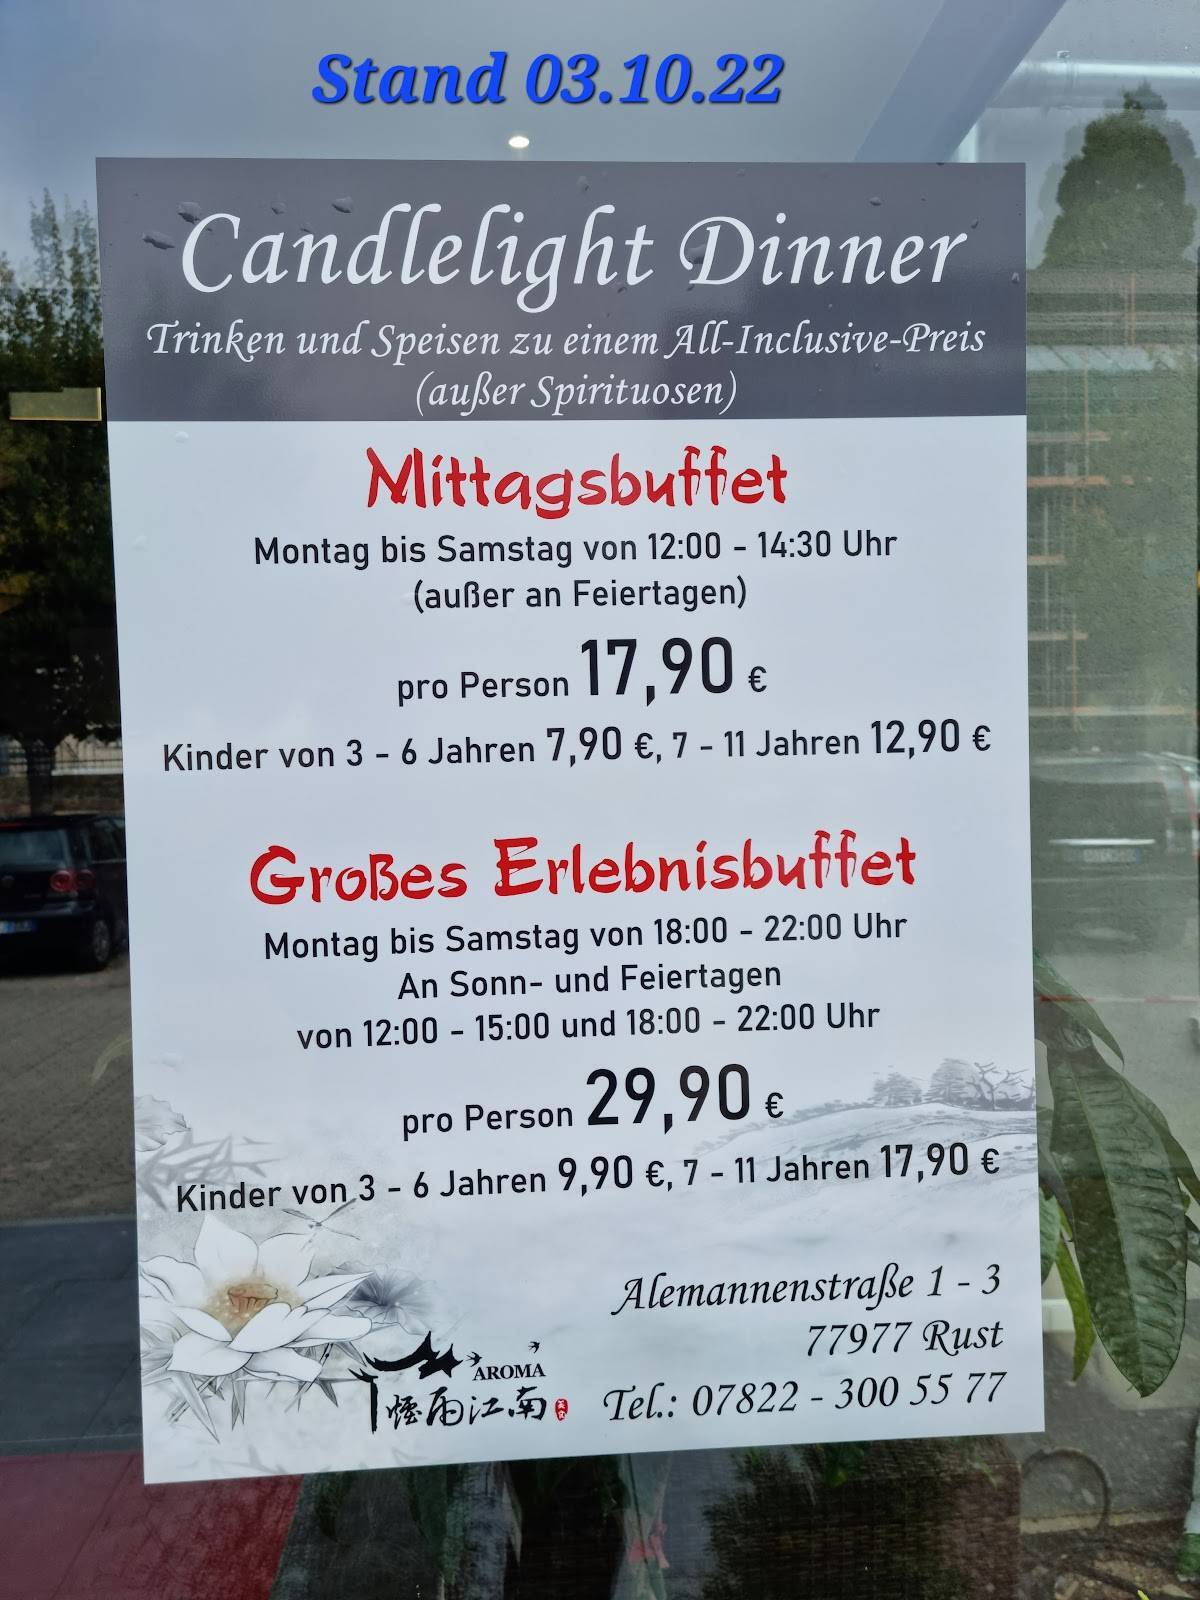 Stand 03.10.22
Candlelight Dinner
Trinken und Speisen zu einem All-Inclusive-Preis
(außer Spirituosen)
Mittagsbuffet
Montag bis Samstag von 12:00 - 14:30 Uhr
(außer an Feiertagen)
pro Person 17,90 €
Kinder von 3 - 6 Jahren 7,90 €, 7 - 11 Jahren 12,90 €
Großes Erlebnisbuffet
Montag bis Samstag von 18:00 - 22:00 Uhr
An Sonn- und Feiertagen
von 12:00 - 15:00 und 18:00 - 22:00 Uhr
pro Person 29,90 €
Kinder von 3 - 6 Jahren 9,90 €, 7 - 11 Jahren 17,90 €
Alemannenstraße 1 - 3
77977 Rust
Tel.: 07822 - 300 55 77
AROMA
煙雨江南